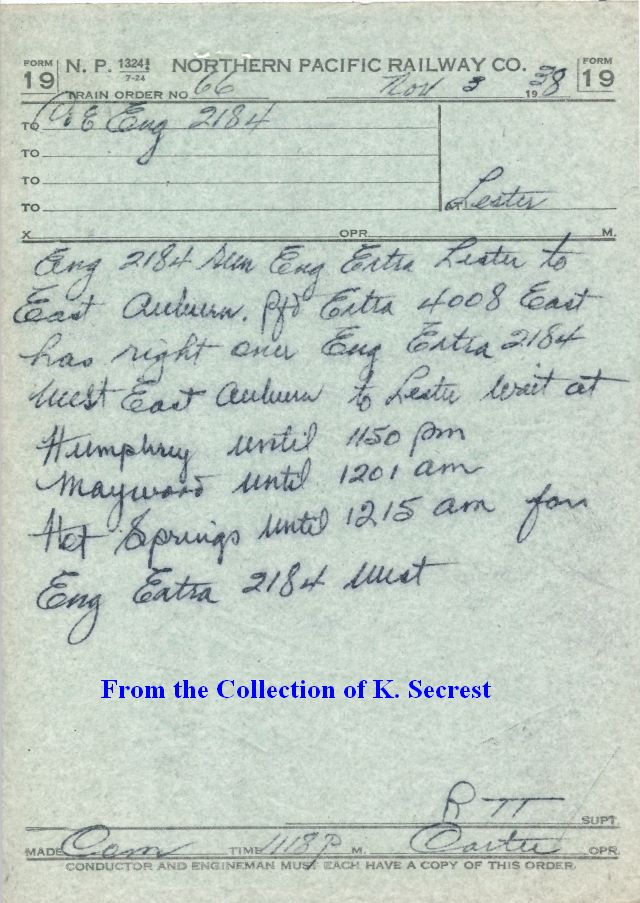 FORM 19 N. P. 1324½ 7-24 NORTHERN PACIFIC RAILWAY CO. FORM 19
TRAIN ORDER NO 66 Nov 3 1938
TO C & E Eng 2184
TO
TO
TO AT Lester
X OPR. M.
Eng 2184 run Eng Extra Lester to
East Auburn. Psgr Extra 4008 East
has right over Eng Extra 2184
West East Auburn to Lester wait at
Humphrey until 1150 pm
Maywood until 1201 am
Hot Springs until 1215 am for
Eng Extra 2184 West
From the Collection of K. Secrest
R TT SUPT
MADE Com TIME 1118 P M. Carter OPR.
CONDUCTOR AND ENGINEMAN MUST EACH HAVE A COPY OF THIS ORDER.